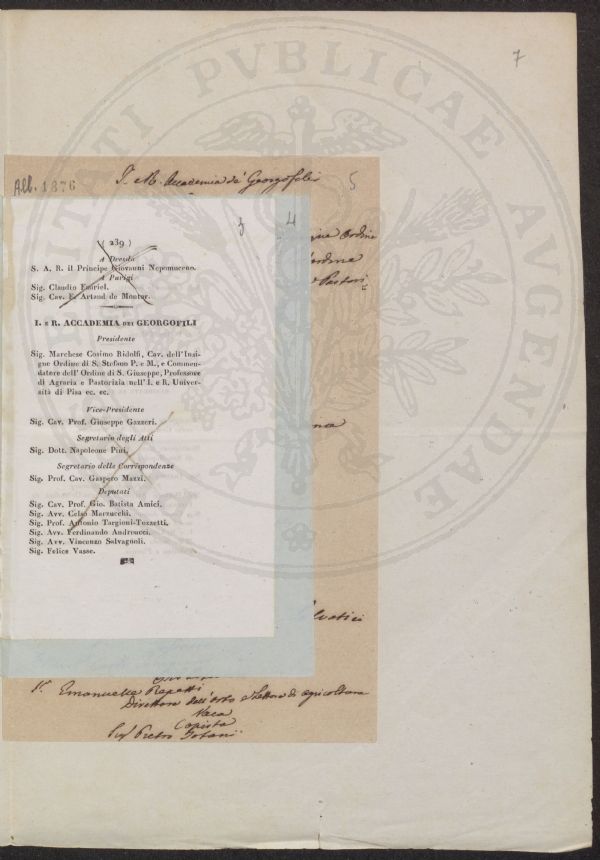 7
Alb. 1876
I. e R. Accademia de' Georgofili
5
3
4
( 239 )
A Dresda
S. A. R. il Principe Giovanni Nepomuceno.
A Parigi
Sig. Claudio Fauriel.
Sig. Cav. F. Artaud de Montor.
I. E R. ACCADEMIA DEI GEORGOFILI
Presidente
Sig. Marchese Cosimo Ridolfi, Cav. dell'Insi-
gne Ordine di S. Stefano P. e M., e Commen-
datore dell'Ordine di S. Giuseppe, Professore
di Agraria e Pastorizia nell'I. e R. Univer-
sità di Pisa ec. ec.
Vice-Presidente
Sig. Cav. Prof. Giuseppe Gazzeri.
Segretario degli Atti
Sig. Dott. Napoleone Pini.
Segretario delle Corrispondenze
Sig. Prof. Cav. Gaspero Mazzi.
Deputati
Sig. Cav. Prof. Gio. Batista Amici.
Sig. Avv. Celso Marzucchi.
Sig. Prof. Antonio Targioni-Tozzetti.
Sig. Avv. Ferdinando Andreucci.
Sig. Avv. Vincenzo Salvagnoli.
Sig. Felice Vasse.
Ordine
ordine
e Pastori
S.r Emanuelle Repetti
Direttore dell'Orto e Lettore di agricoltura
Vaca
Copista
Sig Pietro
PVBLICAE